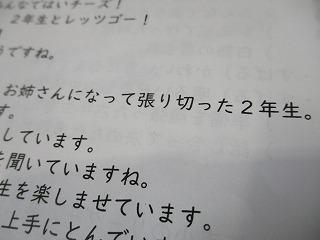 んなではいチーズ！
２年生とレッツゴー！
！
うですね。
お姉さんになって張り切った２年生。
す。
しています。
を聞いていますね。
生を楽しませています。
上手にとんでいま